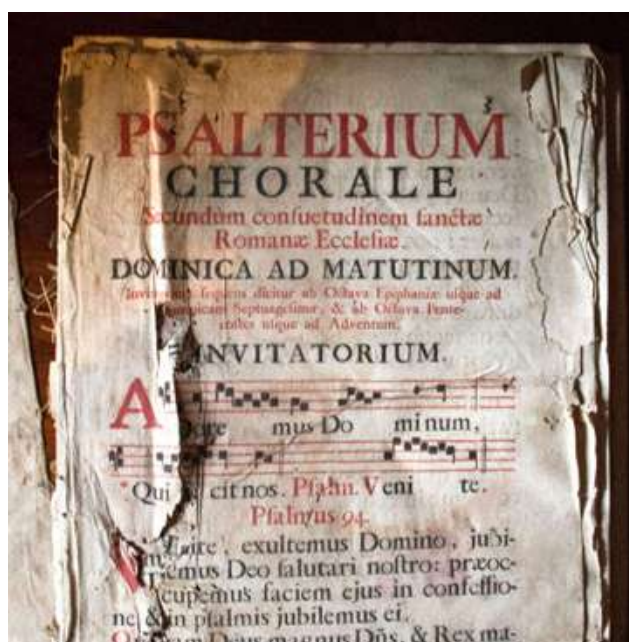 PSALTERIUM
CHORALE
Secundùm conſuetudinem ſanctæ
Romanæ Eccleſiæ.
DOMINICA AD MATUTINUM.
ſequens dicitur ab Octava Epiphaniæ uſque ad
Septuageſimæ, & ab Octava Pente-
coſtes uſque ad Adventum.
INVITATORIUM.
A Dore mus Do minum,
* Qui fe cit nos. Pſalm. Veni te.
Pſalmus 94.
Venite, exultemus Domino, jubi-
lemus Deo ſalutari noſtro: præoc-
cupemus faciem ejus in confeſſio-
ne, & in pſalmis jubilemus ei.
Deus magnus Dñs, & Rex ma-